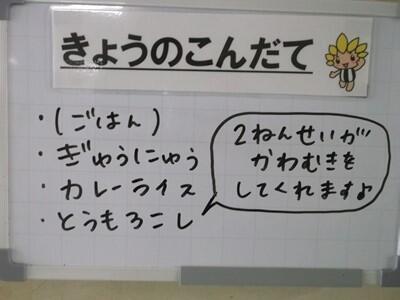 きょうのこんだて
・(ごはん)
・ぎゅうにゅう
・カレーライス
・とうもろこし
2ねんせいが
かわむきを
してくれます♪